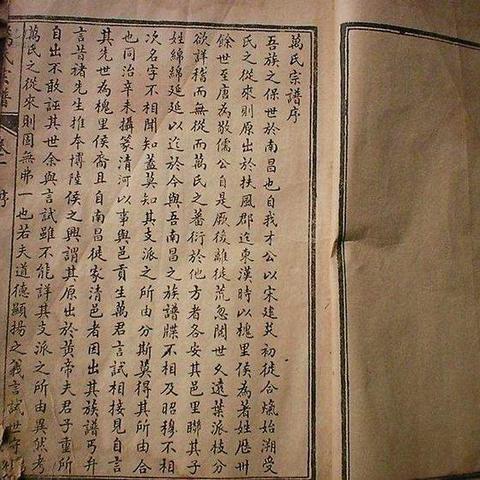 萬氏宗譜序
吾族之保世於南昌也自我才公以宋建炎初徙合燐始溯受
氏之從來則原出於扶風郡迄東漢時以槐里侯為著姓歷卅
餘世至唐為敬儒公自是厥後離徙荒忽閱世久遠葉派枝分
欲詳稽而無從而萬氏之蕃衍於他方者各安其邑里聯其子
姓綿綿延延以迄於今與吾南昌之族譜牒不相及昭穆不相
次名字不相聞知蓋莫知其支派之所由分斯莫得其所由合
也同治辛未攝篆清河以事與邑貢生萬君言試相接見自言
其先世為槐里侯裔且自南昌徙家清邑者因出其族譜丐弁
言昔者先生推本博陸侯之興謂其原出於黄帝夫君子重所
自出不敢誣其世余與言試雖不能詳其支派之所由異然考
萬氏之從來則固無弗一也若夫道德顯揚之義言試世守
萬氏宗譜 卷一 序